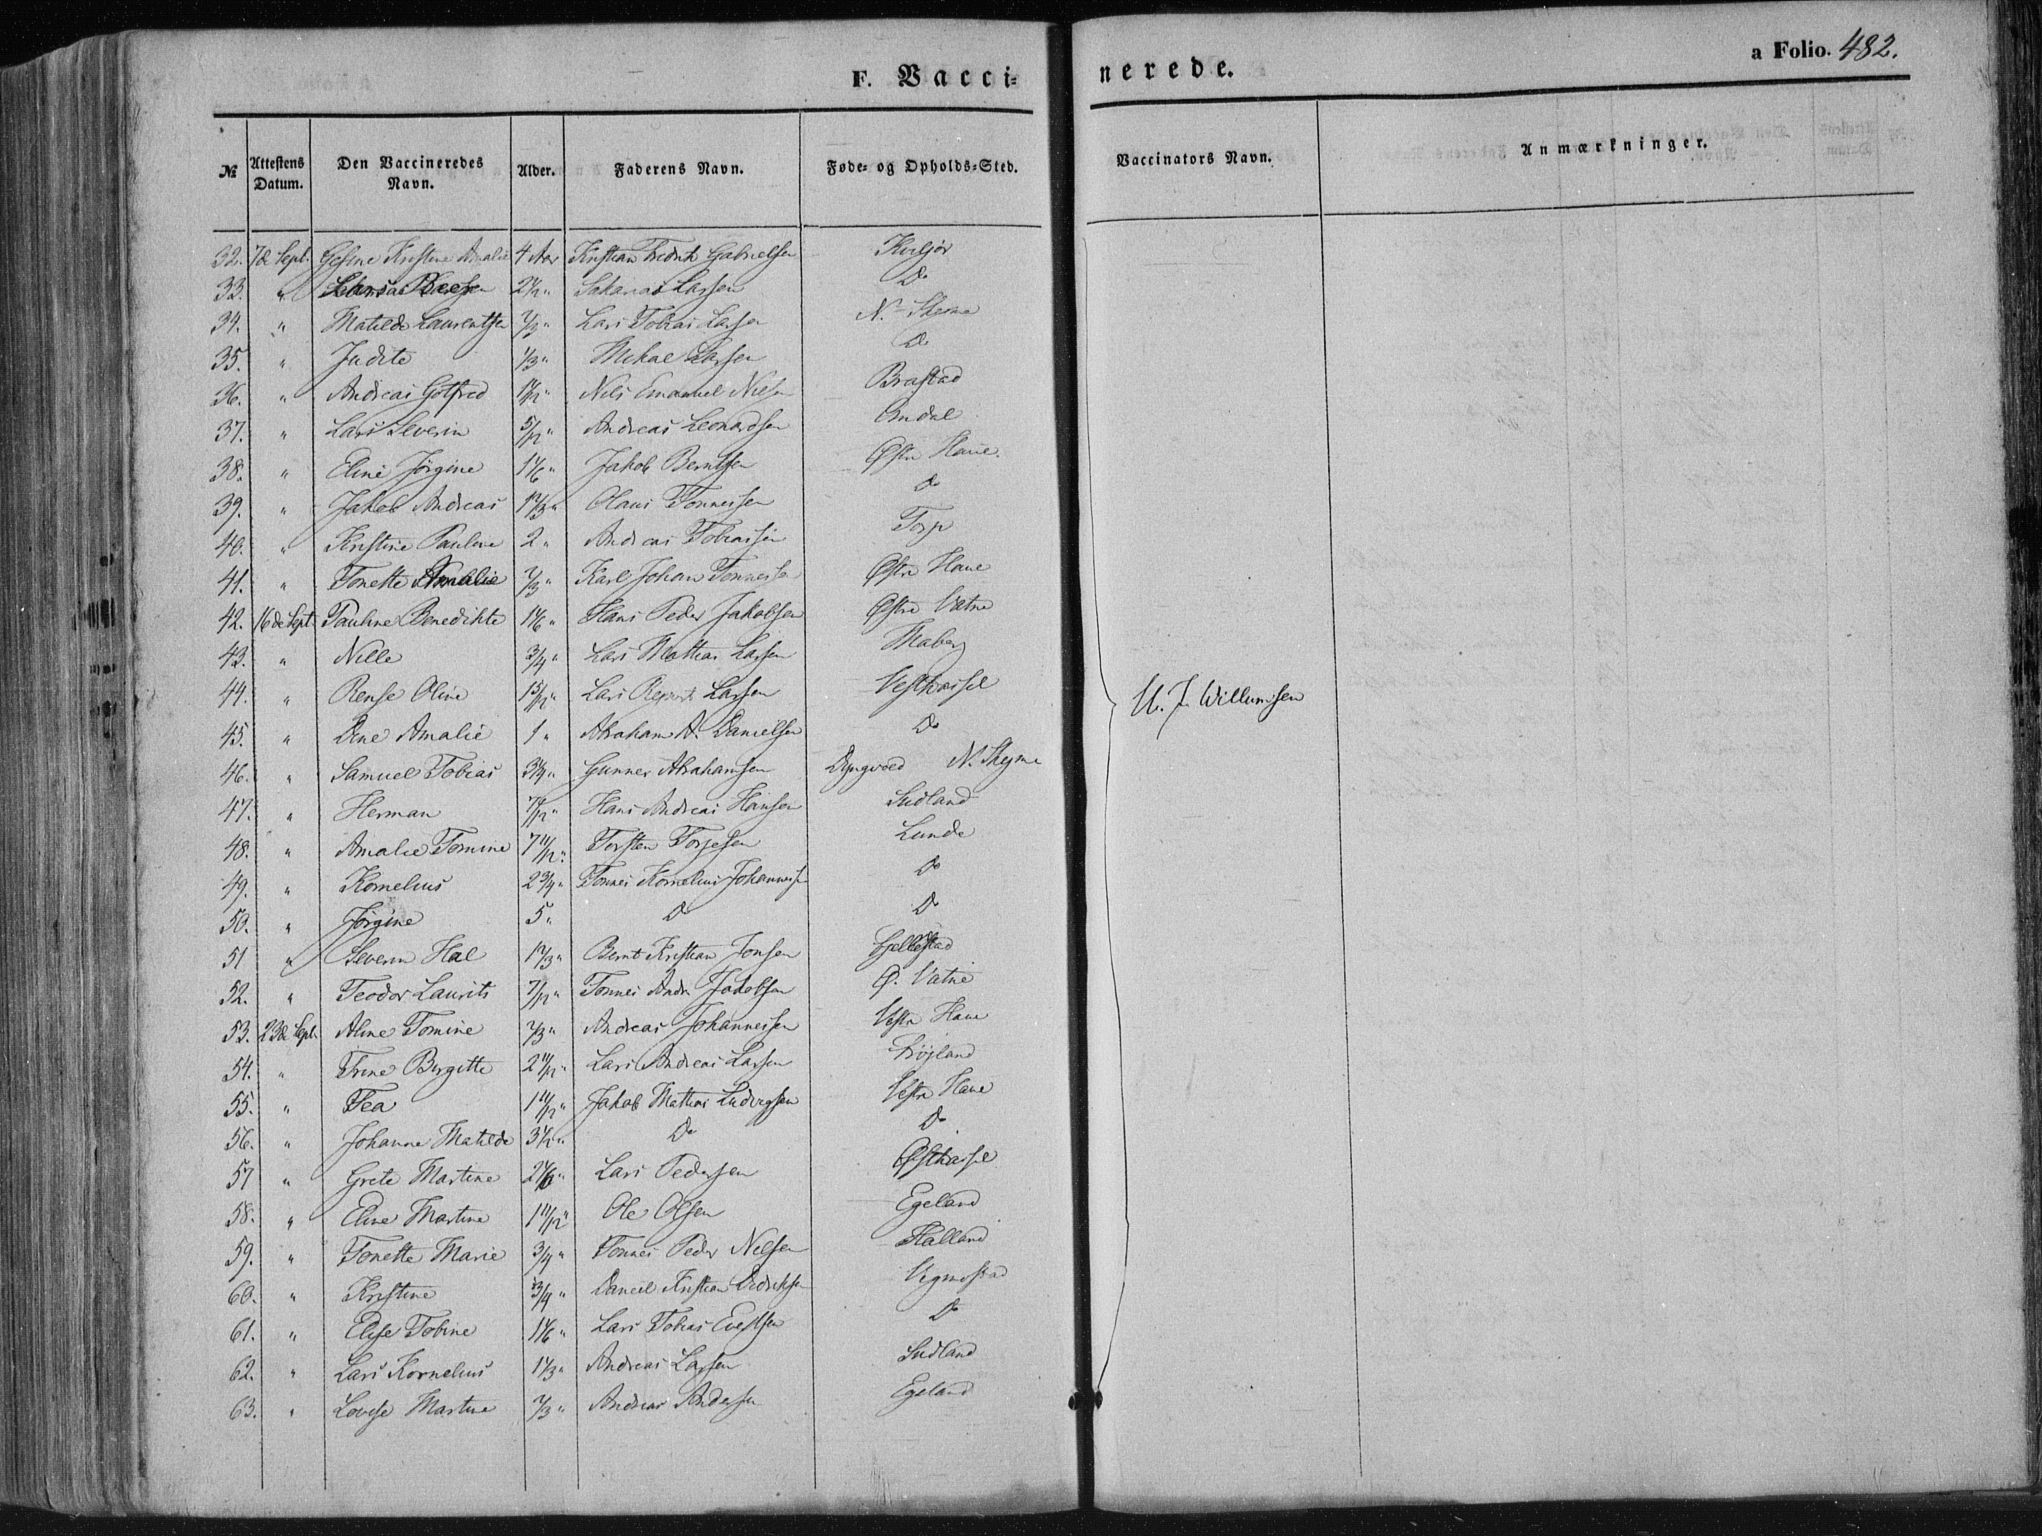 F. Vacci-
nerede.
a Folio. 482.
№
Attestens Datum.
Den Vaccineredes Navn.
Alder.
Faderens Navn.
Føde- og Opholds-Sted.
Vaccinators Navn.
Anmærkninger.
32. 7de Sept. Gesine Kristine Amalie 4 Aar Kristian Fredrik Gabrielsen
33. " 2½ " Sakarias Larsen Do
34. " Matilde Laurentsen 2/3 " Lars Tobias Larsen
35. " Judite 1/3 " Mikal Larsen Do
36. " Andreas Gotfred Nils Emanuel Nilsen Brastad
37. " Lars Severin 5/12 " Andreas Leonardsen
38. " Eline Jørgine 1 1/6 " Jakob Berntsen Østre Haue.
39. " Jakob Andreas Olaus Tønnessen do
40. " Kristine Pauline 2 " Andreas Tobiassen Torp
41. " Tonette Amalie 2/3 " Karl Johan Tønnessen Østre Haue
42. 16de Sept. Pauline Benedikte 1 1/6 " Hans Peder Jakobsen Østre Vatne
43. " Nille 3/4 " Lars Mathias Larsen Maberg
44. " Rense Oline Lars Larsen Vesthassel
45. " Dine Amalie 1 " Abraham A. Danielsen Do
46. " Samuel Tobias 3 3/4 " Gunner Abrahamsen Dyngvoll N. Skeyme
47. " Herman Hans Andreas Hansen Sudland
48. " Amalie Tomine 7 11/12 " Torsten Torjesen Lunde
49. " Kornelius 2 3/4 " Tønnes Kornelius Johannessen do
50. " Jørgine 5 " Do Do
51 " Severin Hal 1 2/3 " Bernt Kristian Jonsen
52. " Teodor Laurits 7/12 " Tønnes Andr. Jakobsen Ø. Vatne
53. 23de Sept. Aline Tomine 2/3 " Andreas Johannessen Vestre Haue
54. " Trine Birgitte 2 11/12 " Lars Andreas Larsen
55. " Tea 1 11/12 " Jakob Mathias Ludvigsen Vestre Haue
56. " Johanne Matilde 3½ " Do Do
57 " Grete Martine Lars Pedersen Østhassel
58. " Eline Martine 1 11/12 " Ole Olsen Egeland
59. " Tonette Marie 3/4 " Tønnes Peder Nilsen Stalland
60. " Kristine 3/4 " Daniel Kristian Didriksen Vigmostad
61. " Elise Tobine 1 1/6 " Lars Tobias Evertsen Do
62. " Lars Kornelius 1 1/3 " Andreas Larsen Sudland
63. " Lovise Martine 2/3 " Andreas Andersen Egeland
U. J. Willumsen